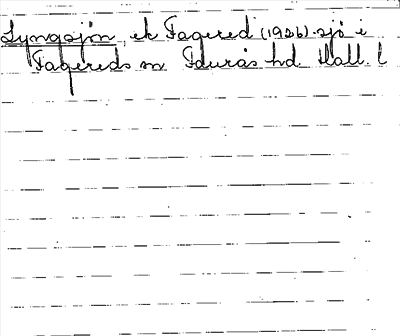 Lyngsjön, ek Fagered (1926). sjö i
Fagereds sn Faurås hd. Hall. l